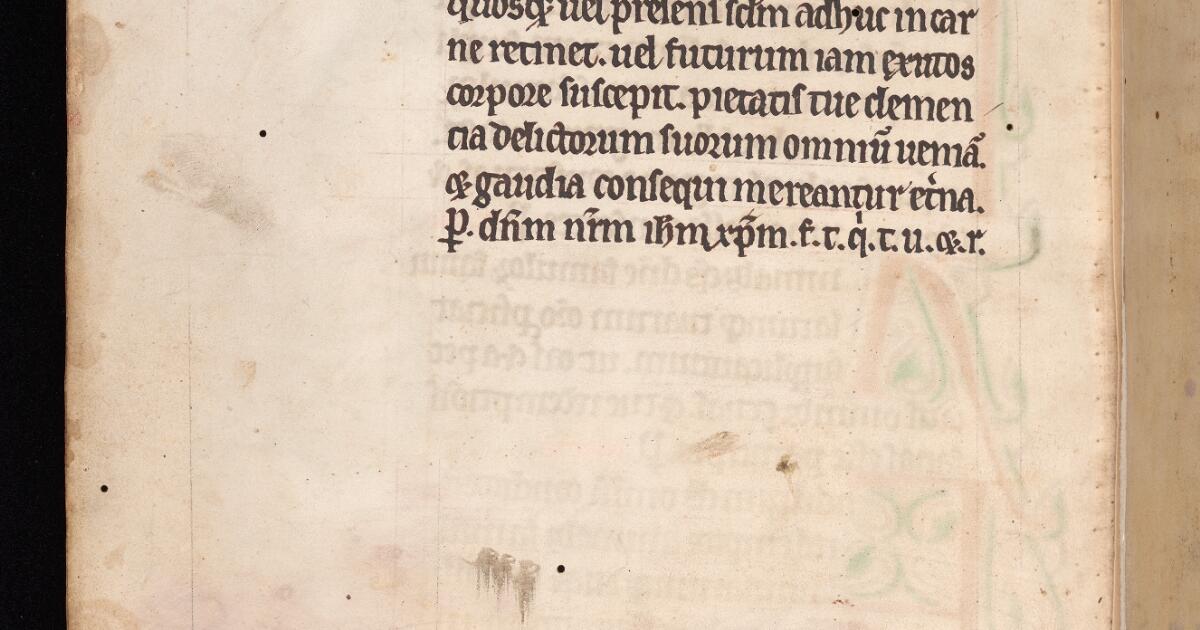 quosq; uel presens sclm adhuc in car
ne retinet. uel futurum iam exutos
corpore suscepit. pietatis tue clemen
cia delictorum suorum omniū ueniā.
& gaudia consequi mereantur et̾na.
P. dn̄m nr̄m ih̄m xp̄m. f. t. q̇. t. u. &. r.